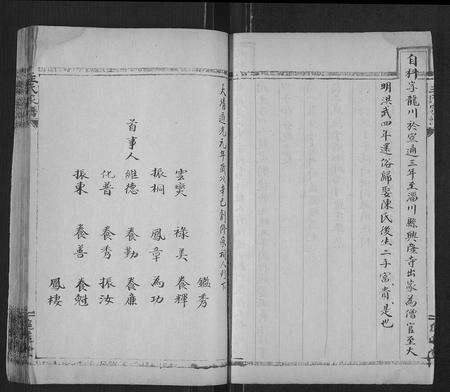 自科字龍川於宣適三年至淄川縣興慶寺出家為僧官至大
明洪武四年還俗歸娶陳氏後生二子富貴是也
大清道光元年歲次辛巳創修
鑑秀
雲 祿美 養輝
振桐 鳳章 為功
首事人 維德 養勤 養廉
化普 養秀 振汝
振東 養善 養魁
鳳棲